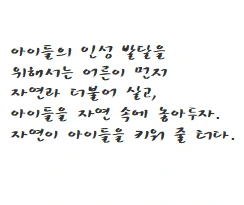 아이들의 인성 발달을
위해서는 어른이 먼저
자연과 더불어 살고,
아이들을 자연 속에 놓아두자.
자연이 아이들을 키워 줄 터다.